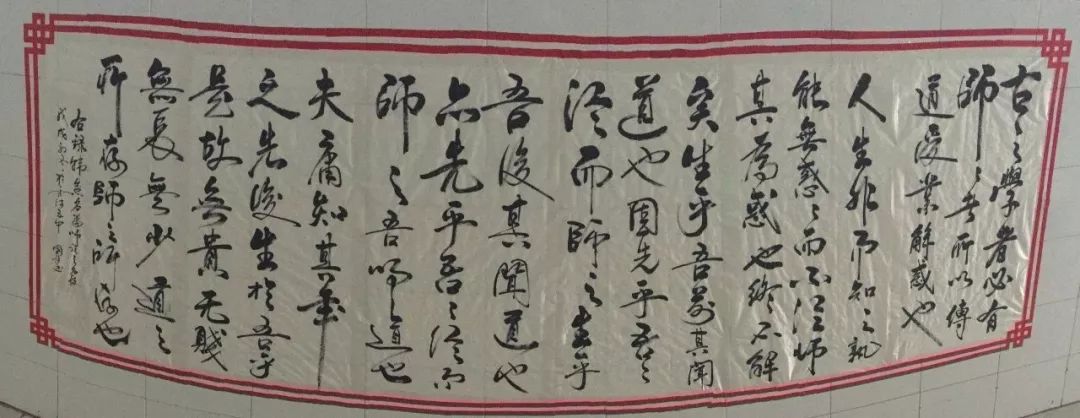 古之學者必有
師〻者所以傳
道受業解惑也
人生非而知之孰
能無惑〻而不從師
其為惑也終不解
矣生乎吾前其聞
道也固先乎吾〻
從而師之生乎
吾後其聞道也
亦先乎吾〻從而
師之吾師道也
夫庸知其年
之先後生於吾乎
是故無貴无賤
無長無少道之
所存師之所存也
右錄韓愈名篇師說
戊戌